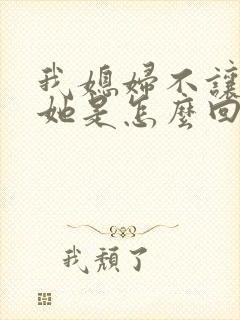 我媳婦不讓
她是怎麼回
我頹了